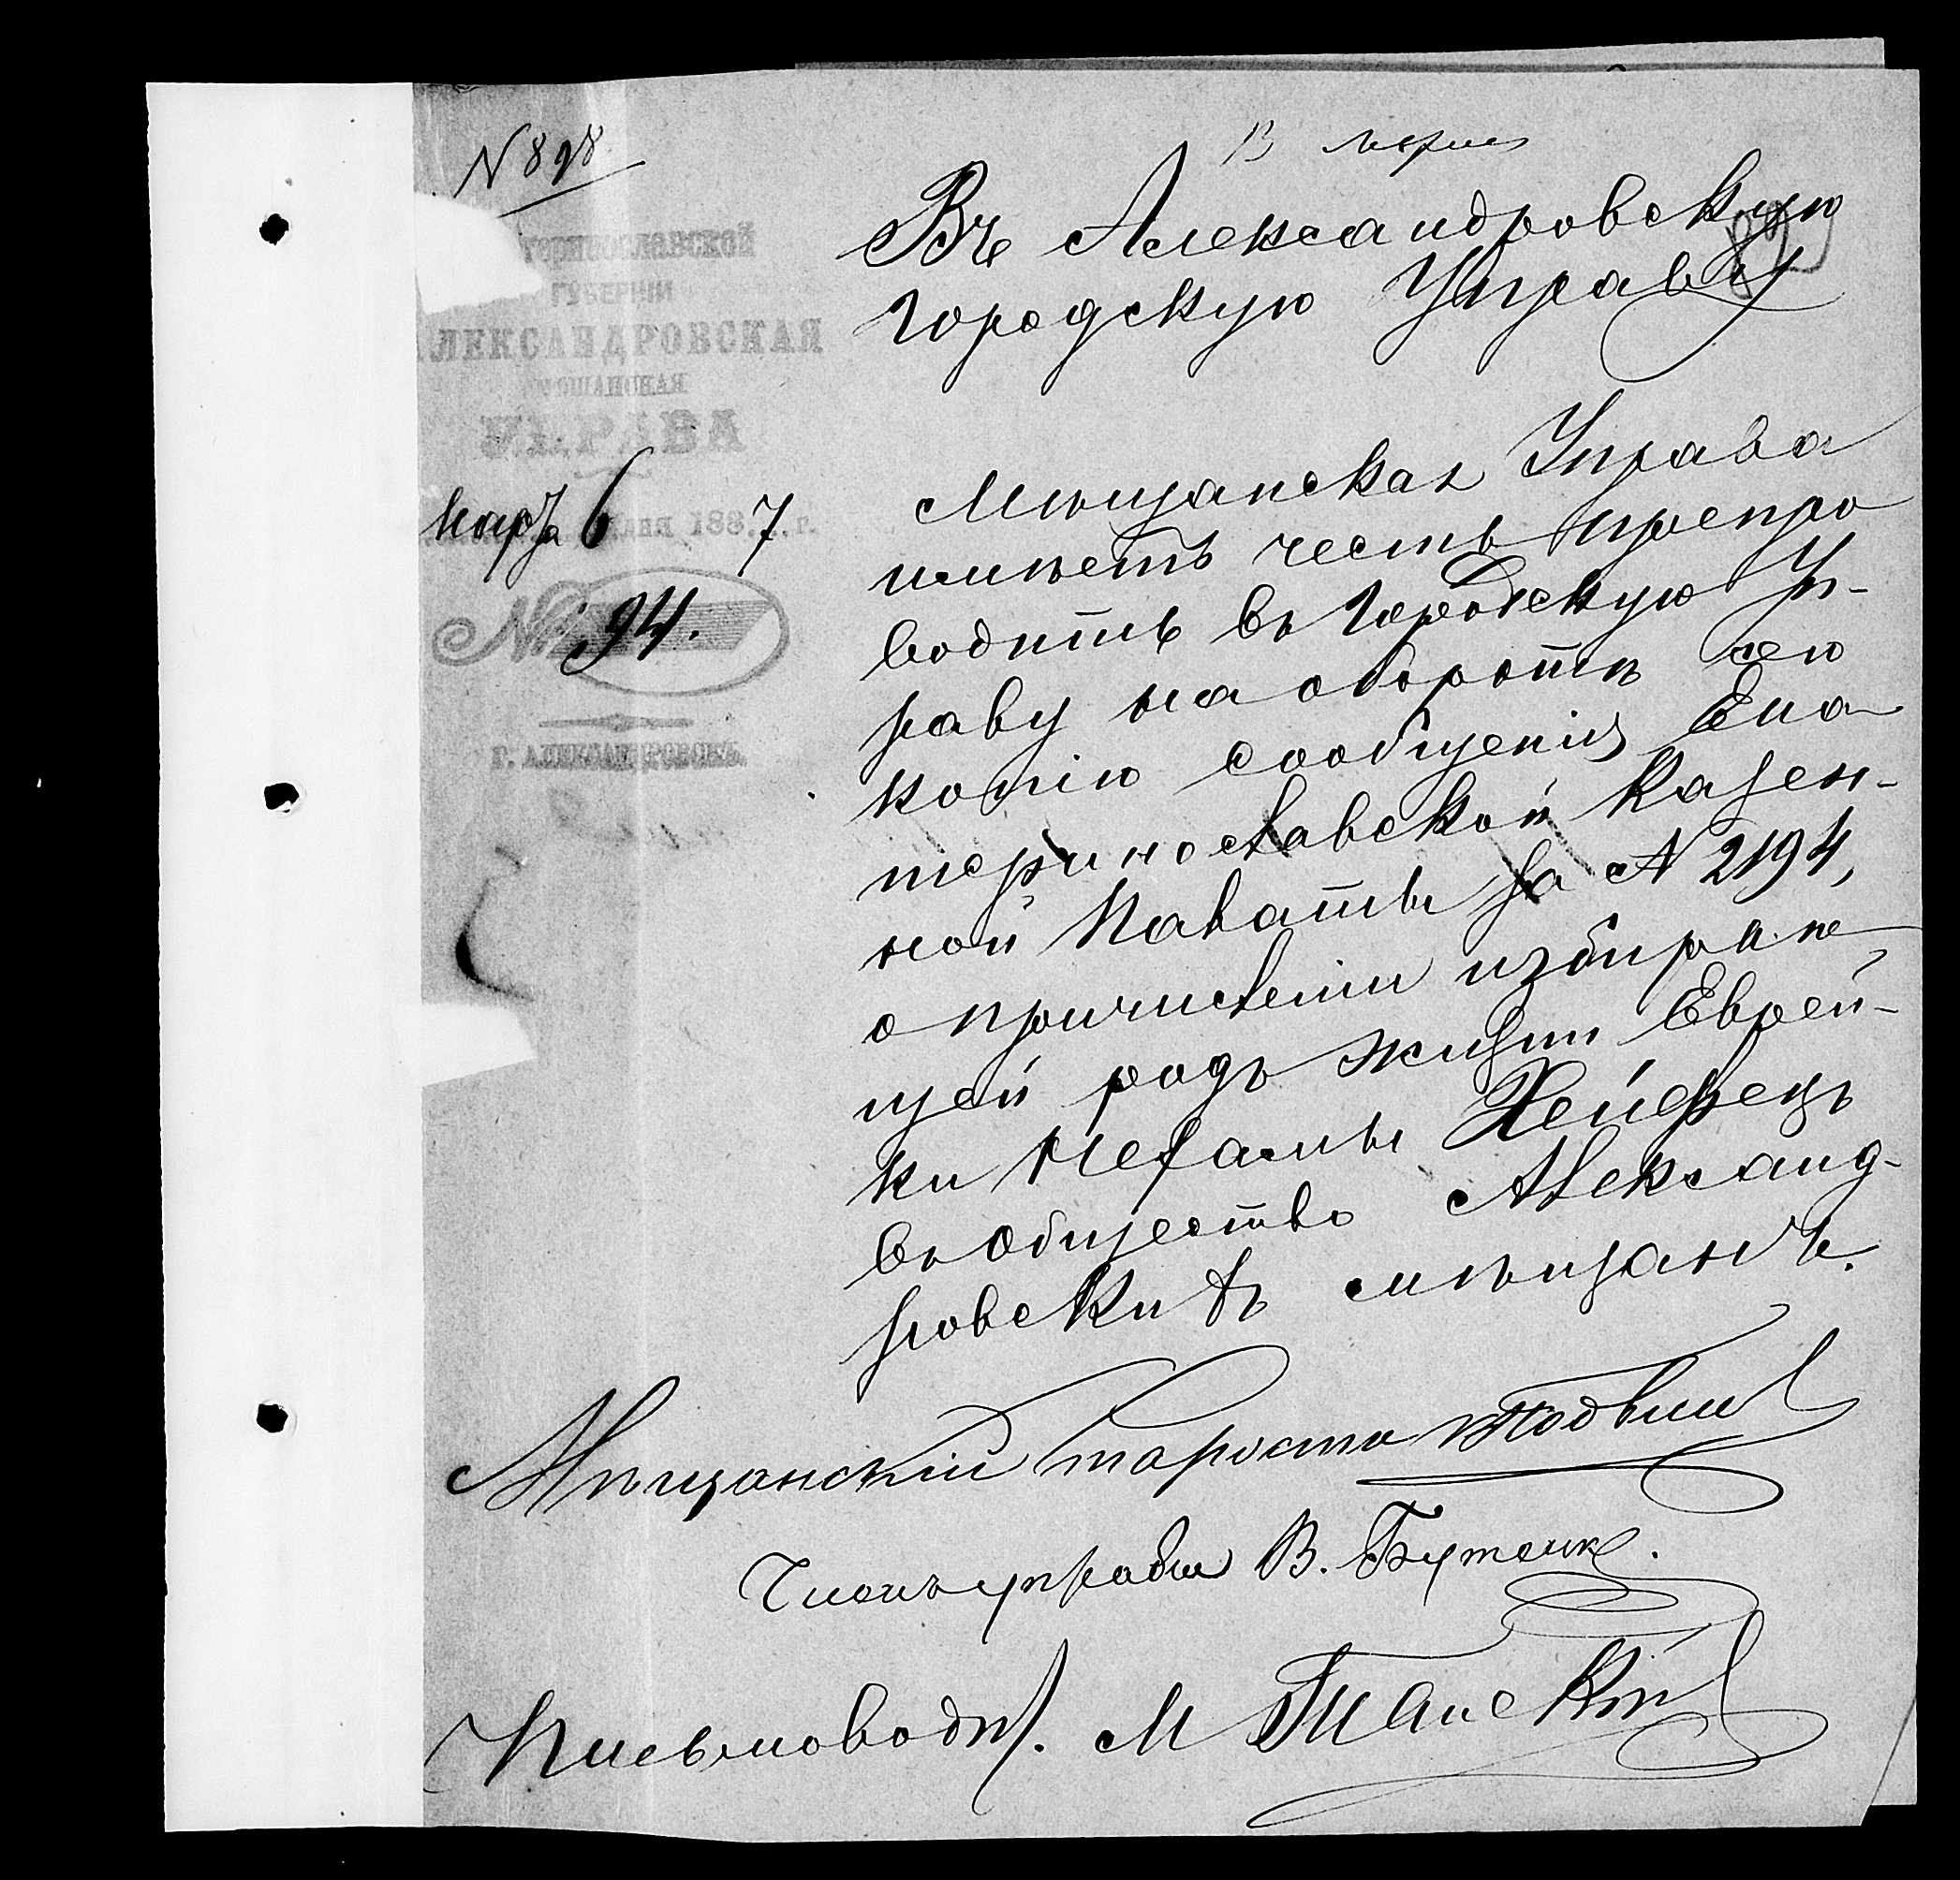 № 898
Въ Александровскую
Городскую Управу
ГУБЕРНІИ
ЛЕКСАНДРОВСКАЯ
УПРАВА
Марта 6 дня 1887 г.
№ 94.
Г. АЛЕКСАНДРОВСКЪ.
Мѣщанская Управа
имѣетъ честь препро
водить въ Городскую Уп-
раву на оборотѣ сего
копію сообщенія Ека
теринославской Казен-
ной Палаты за № 2194,
о причисленіи избирае
щей родъ жизни Еврей-
ки Нехамы Хейфецъ
въ общество Александ-
ровскихъ мѣщанъ.
Мѣщанскій Староста
Членъ управы В. Бутенко.
Письмоводит. М